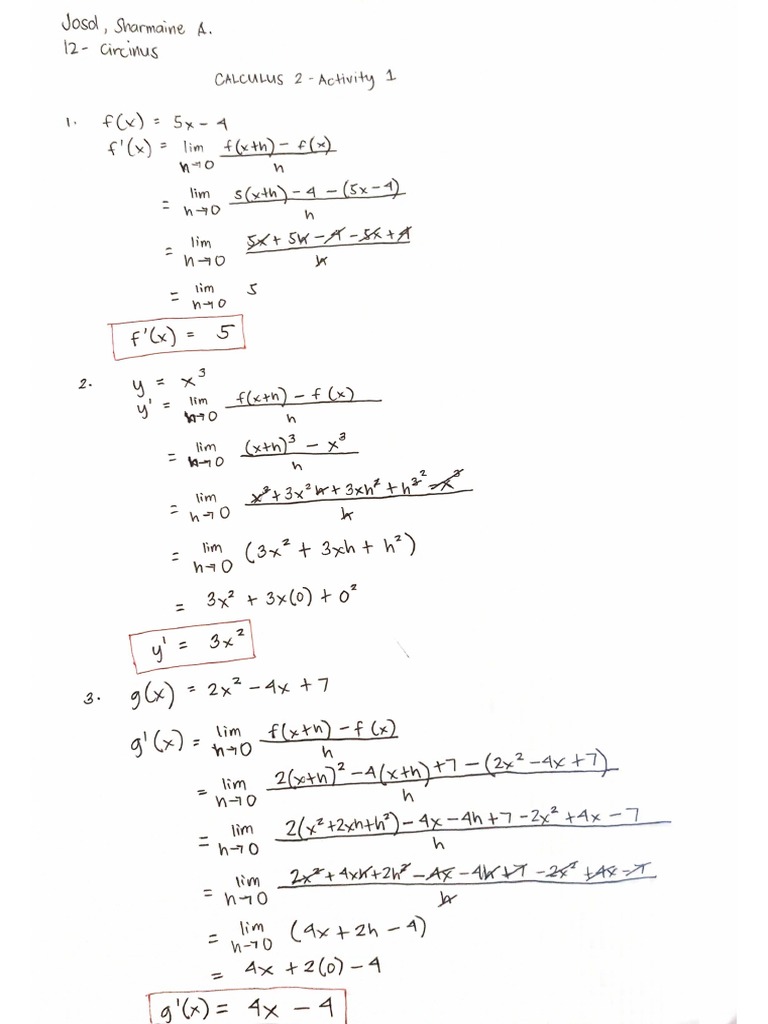 Josol, Sharmaine A.
12 - Circinus
CALCULUS 2 - Activity 1
1. f(x) = 5x - 4
f'(x) = lim h→0 f(x+h) - f(x) / h
= lim h→0 5(x+h) - 4 - (5x - 4) / h
= lim h→0 5x + 5h - 4 - 5x + 4 / h
= lim h→0 5
f'(x) = 5
2. y = x³
y' = lim h→0 f(x+h) - f(x) / h
= lim h→0 (x+h)³ - x³ / h
= lim h→0 x³ + 3x²h + 3xh² + h³ ² - x³ / h
= lim h→0 (3x² + 3xh + h²)
= 3x² + 3x(0) + 0²
y' = 3x²
3. g(x) = 2x² - 4x + 7
g'(x) = lim h→0 f(x+h) - f(x) / h
= lim h→0 2(x+h)² - 4(x+h) + 7 - (2x² - 4x + 7) / h
= lim h→0 2(x² + 2xh + h²) - 4x - 4h + 7 - 2x² + 4x - 7 / h
= lim h→0 2x² + 4xh + 2h² - 4x - 4h + 7 - 2x² + 4x - 7 / h
= lim h→0 (4x + 2h - 4)
= 4x + 2(0) - 4
g'(x) = 4x - 4